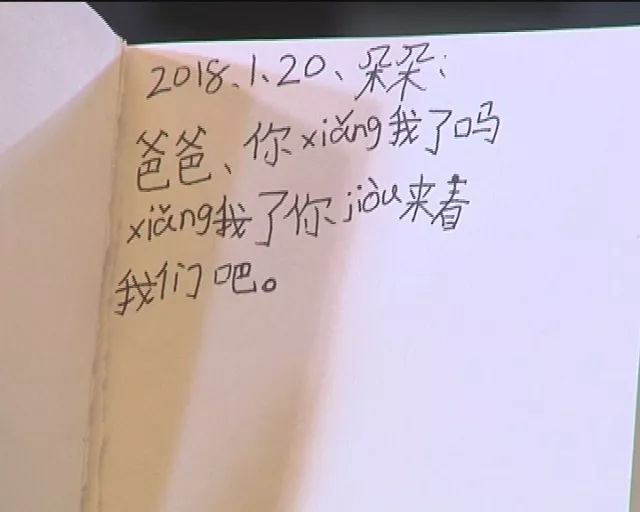 2018.1.20、朵朵:
爸爸、你xiǎng我了吗
xiǎng我了你jiòu来看
我们吧。